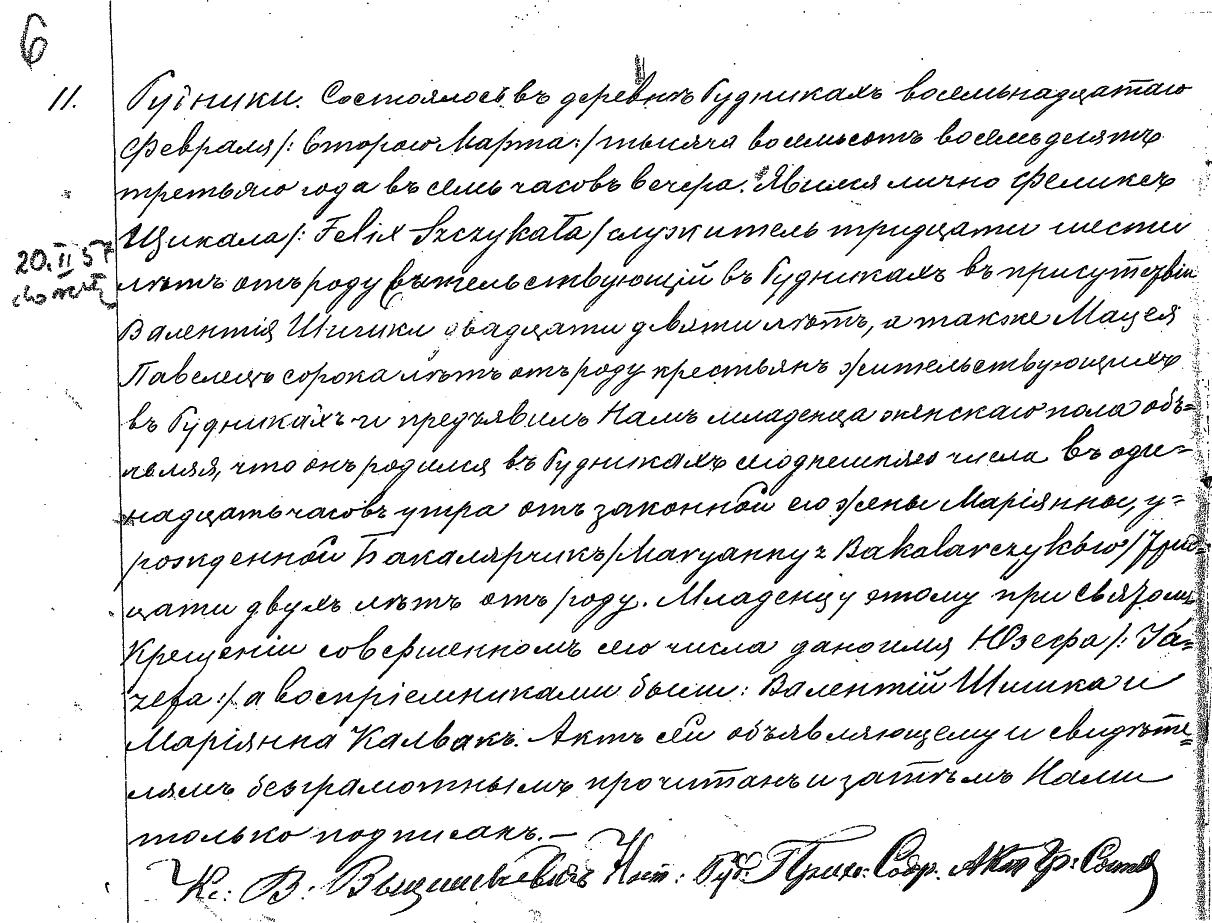 6
11. Рудники. Состоялось въ деревнѣ Рудникахъ восемьнадцатаго
Февраля /: Втораго Марта :/ тысяча восемьсотъ восемьдесятъ
третьяго года въ семь часовъ вечера. Явился лично Феликсъ
Щикала /: Felix Szczykała / служитель тридцати шести
20.II 57
лѣтъ отъ роду жительствующій въ Рудникахъ въ присутствіи
Валентія двадцати девяти лѣтъ, а также Мацея
Павелецъ сорока лѣтъ отъ роду крестьянъ жительствующихъ
въ Рудникахъ и предъявилъ Намъ младенца женскаго пола объ=
являя, что онъ родился въ Рудникахъ сегоднешняго числа въ оди=
надцать часовъ утра отъ законной его жены Маріянны, у=
рожденной Бакалярчикъ / Maryanny z Bakalarczyków / трид=
цати двухъ лѣтъ отъ роду. Младенцу этому при Святомъ
Крещеніи совершенномъ сего числа дано имя Юзефа /: Jó=
zefa :/ а воспріемниками были: Валентій Шлика и
Маріянна Калвакъ. Актъ сей объявляющему и свидѣте=
лямъ безграмотнымъ прочитанъ и затѣмъ Нами
только подписанъ. —
Кс: В: Наст: Руд: Прих: Содер. Акт Гр: Сост